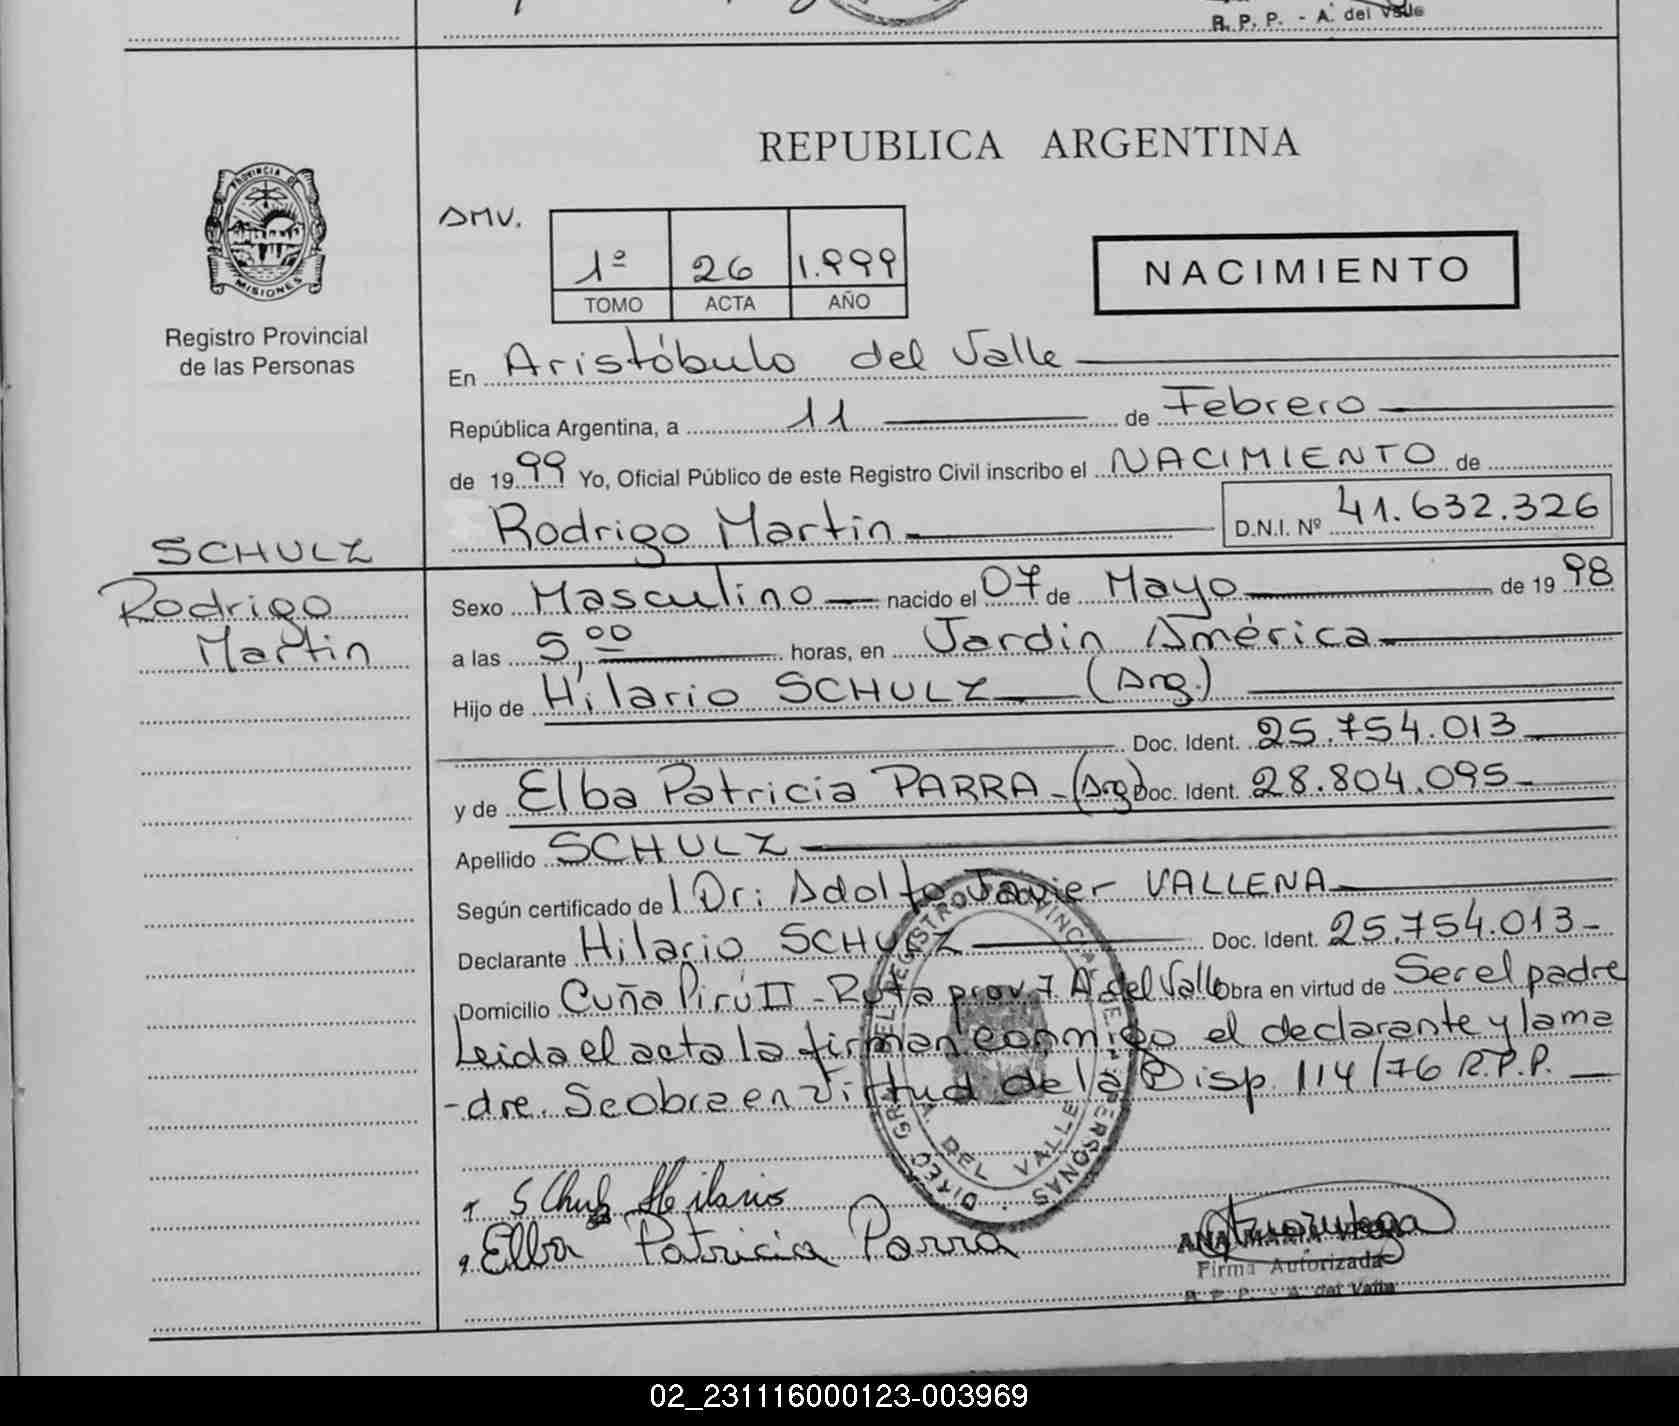 R. P. P. - A. del Valle
REPUBLICA ARGENTINA
PROVINCIA DE
MISIONES
Registro Provincial
de las Personas
AMV.
1º 26 1.999
TOMO ACTA AÑO
NACIMIENTO
En Aristóbulo del Valle
República Argentina, a 11 de Febrero
de 1999 Yo, Oficial Público de este Registro Civil inscribo el NACIMIENTO de
Rodrigo Martin D.N.I. Nº 41.632.326
SCHULZ
Rodrigo
Martin
Sexo Masculino nacido el 07 de Mayo de 1998
a las 5,00 horas, en Jardin América
Hijo de Hilario SCHULZ (Arg.)
Doc. Ident. 25.754.013
y de Elba Patricia PARRA - (Arg) Doc. Ident. 28.804.095-
Apellido SCHULZ
Según certificado del Dr: Adolfo Javier VALLENA
Declarante Hilario SCHULZ Doc. Ident. 25.754.013-
Domicilio Cuña Pirú II - Ruta prov. 7 A del Valle Obra en virtud de Ser el padre
Leida el acta la firman conmigo el declarante y la ma
-dre. Se obra en virtud de la Disp. 114/76 R.P.P.
DEL REGISTRO PROVINCIAL DE LAS PERSONAS
A. DEL VALLE
Schulz Hilario
Elba Patricia Parra
ANA MARIA
Firma Autorizada
R. P. P. - A. del Valle
02_231116000123-003969